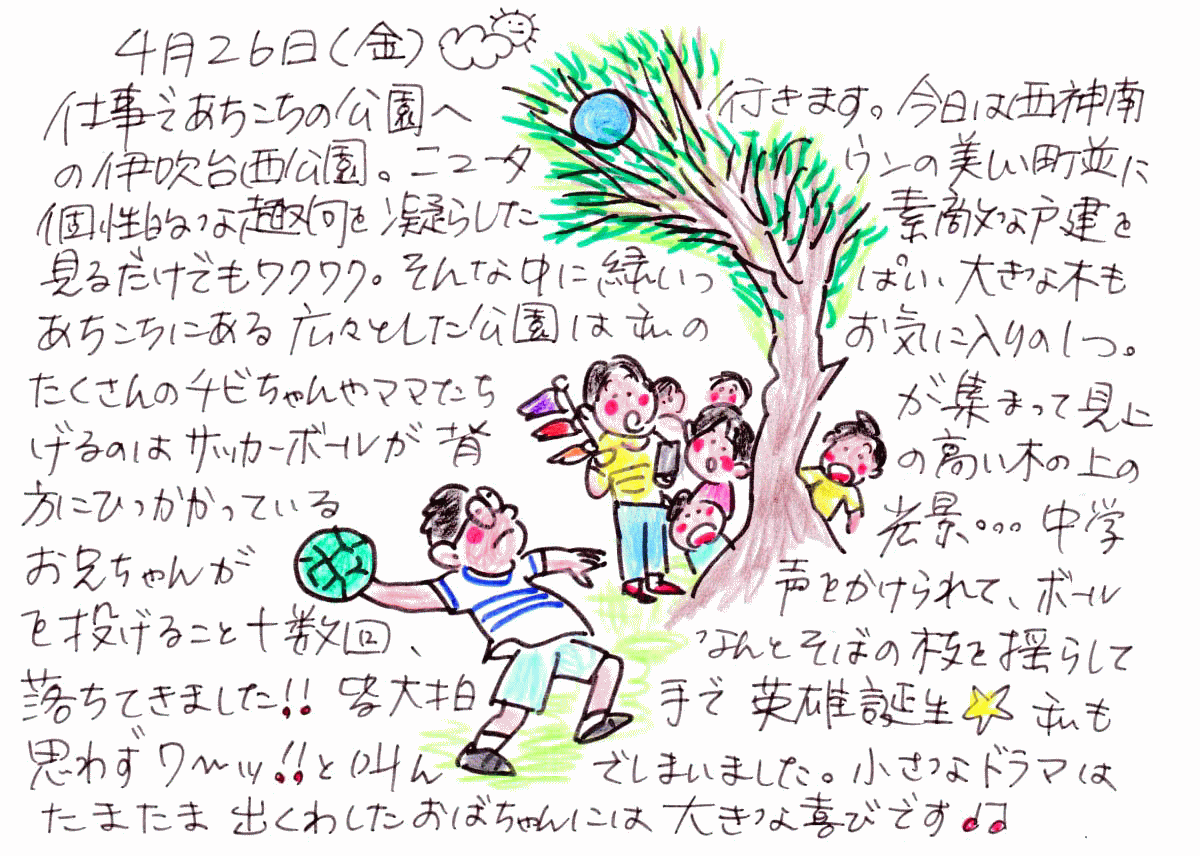 4月26日(金)
仕事であちこちの公園へ行きます。今日は西神南
の伊吹台西公園。ニュータウンの美しい町並に
個性的な趣向を凝らした素敵な戸建を
見るだけでもワクワク。そんな中に緑いっぱい、大きな木も
あちこちにある広々とした公園は私のお気に入りの1つ。
たくさんのチビちゃんやママたちが集まって見上
げるのはサッカーボールが背の高い木の上の
方にひっかかっている光景。。。中学
お兄ちゃんが声をかけられて、ボール
を投げること十数回、なんとそばの枝を揺らして
落ちてきました!!皆大拍手で英雄誕生☆私も
思わずワ〜ッ!!と叫んでしまいました。小さなドラマは
たまたま出くわしたおばちゃんには大きな喜びです♪♫